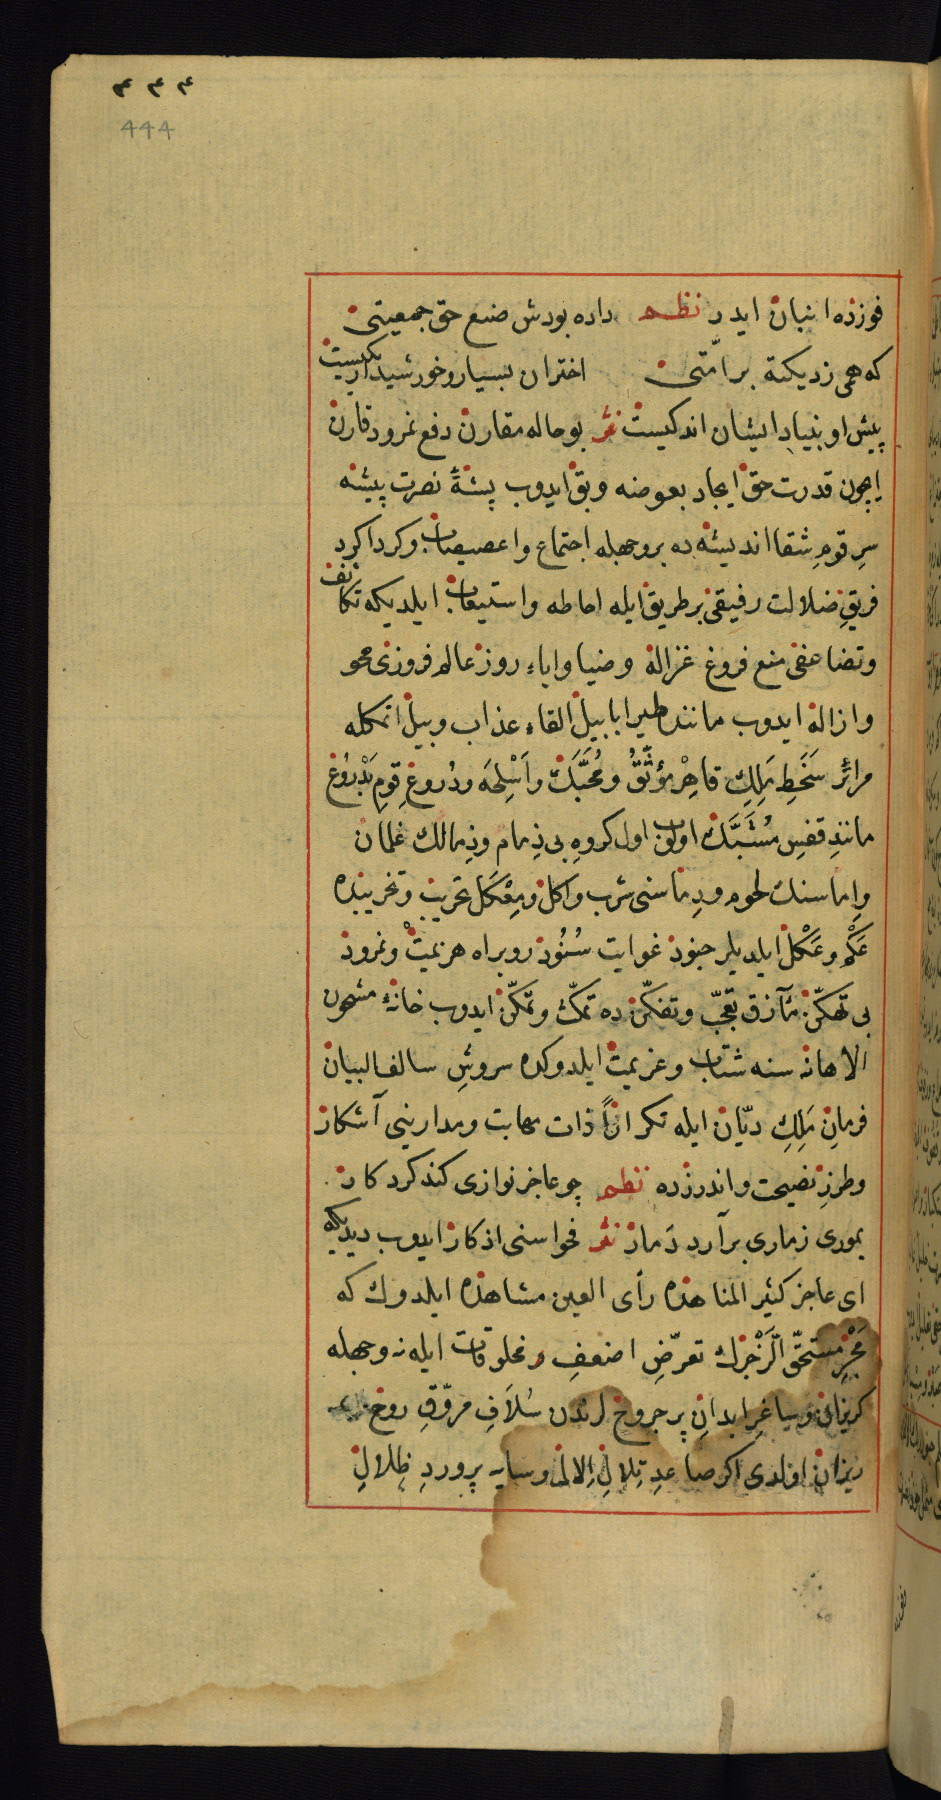 ۴۴۴
444
فوزده انبان ايدر نظم داده بودش صنع حق جمعيتى
كه همى زد يكتنه بر امّتى اختران بسيار و خورشيد ار يكيست
پيش او بنياد ايشان اندكيست نثر بو حاله مقارن دفع نمرود قارن
ايچون قدرت حق ايجاد بعوضه و بق ايدوب پشۀ نصرت پيشه
سرِ قومِ شقا انديشه ده بر وجهله اجتماع و اعصيصاب و كرداكرد
فريقِ ضلالت رفيقى بر طريق ايله احاطه و استيعاب ايلديكه تكاثف
و تضاعفى منع فروغ غزاله و ضيا و اباءِ روز عالم فروزى محو
و ازاله ايدوب مانند طير ابابيل القاء عذاب و بيل اتمكله
مراثر سَخَطِ مَلِكِ قاهِرْ مؤثّق و مُحَبَّك و اَسْلِحَه و دُروغِ قومِ بَدْرُوغ
مانندِ قفسِ مُشَبَّك اولوب اول كروهِ بى ذِمام و ذِمالك غلمان
و اِماسنك لحوم و دِماسنى شرب و اكل و مِعْكَل تخريب و تخريبنده
عَكْم و عَكْل ايلديلر جنود غوايت سُنُود روبراه هزيمت و نمرود
بى تهكّن مآزق تعجّب و تفكّن ده تمكّث و تمكّن ايدوب خانۀ مشحون
الاهانه سنه شتاب و عزيمت ايلدوكده سروشِ سالف البيان
فرمانِ مَلِكِ ديّان ايله تكراراً ذات مهابت و مدارينى آشكار
و طرزِ نصيحت و اندرزده نظم چو عاجز نوازى كند كردكار
بمورى ز مارى برآرد دَمار نثر فحواسنى اذكار ايدوب ديديكه
اى عاجز كثير المناهذه رأى العين مشاهده ايلدوك كه
مستحقّ الزَّجْرك تعرّضِ اضعفِ مخلوقات ايله نه وجهله
كريزان و سياغرِ ابدانِ پر جروحلرندن سُلافِ مروّقِ روح
ريزان اولدى اكر صاعدِ تِلالِ اِلالم و سايه پروردِ ظِلالِ